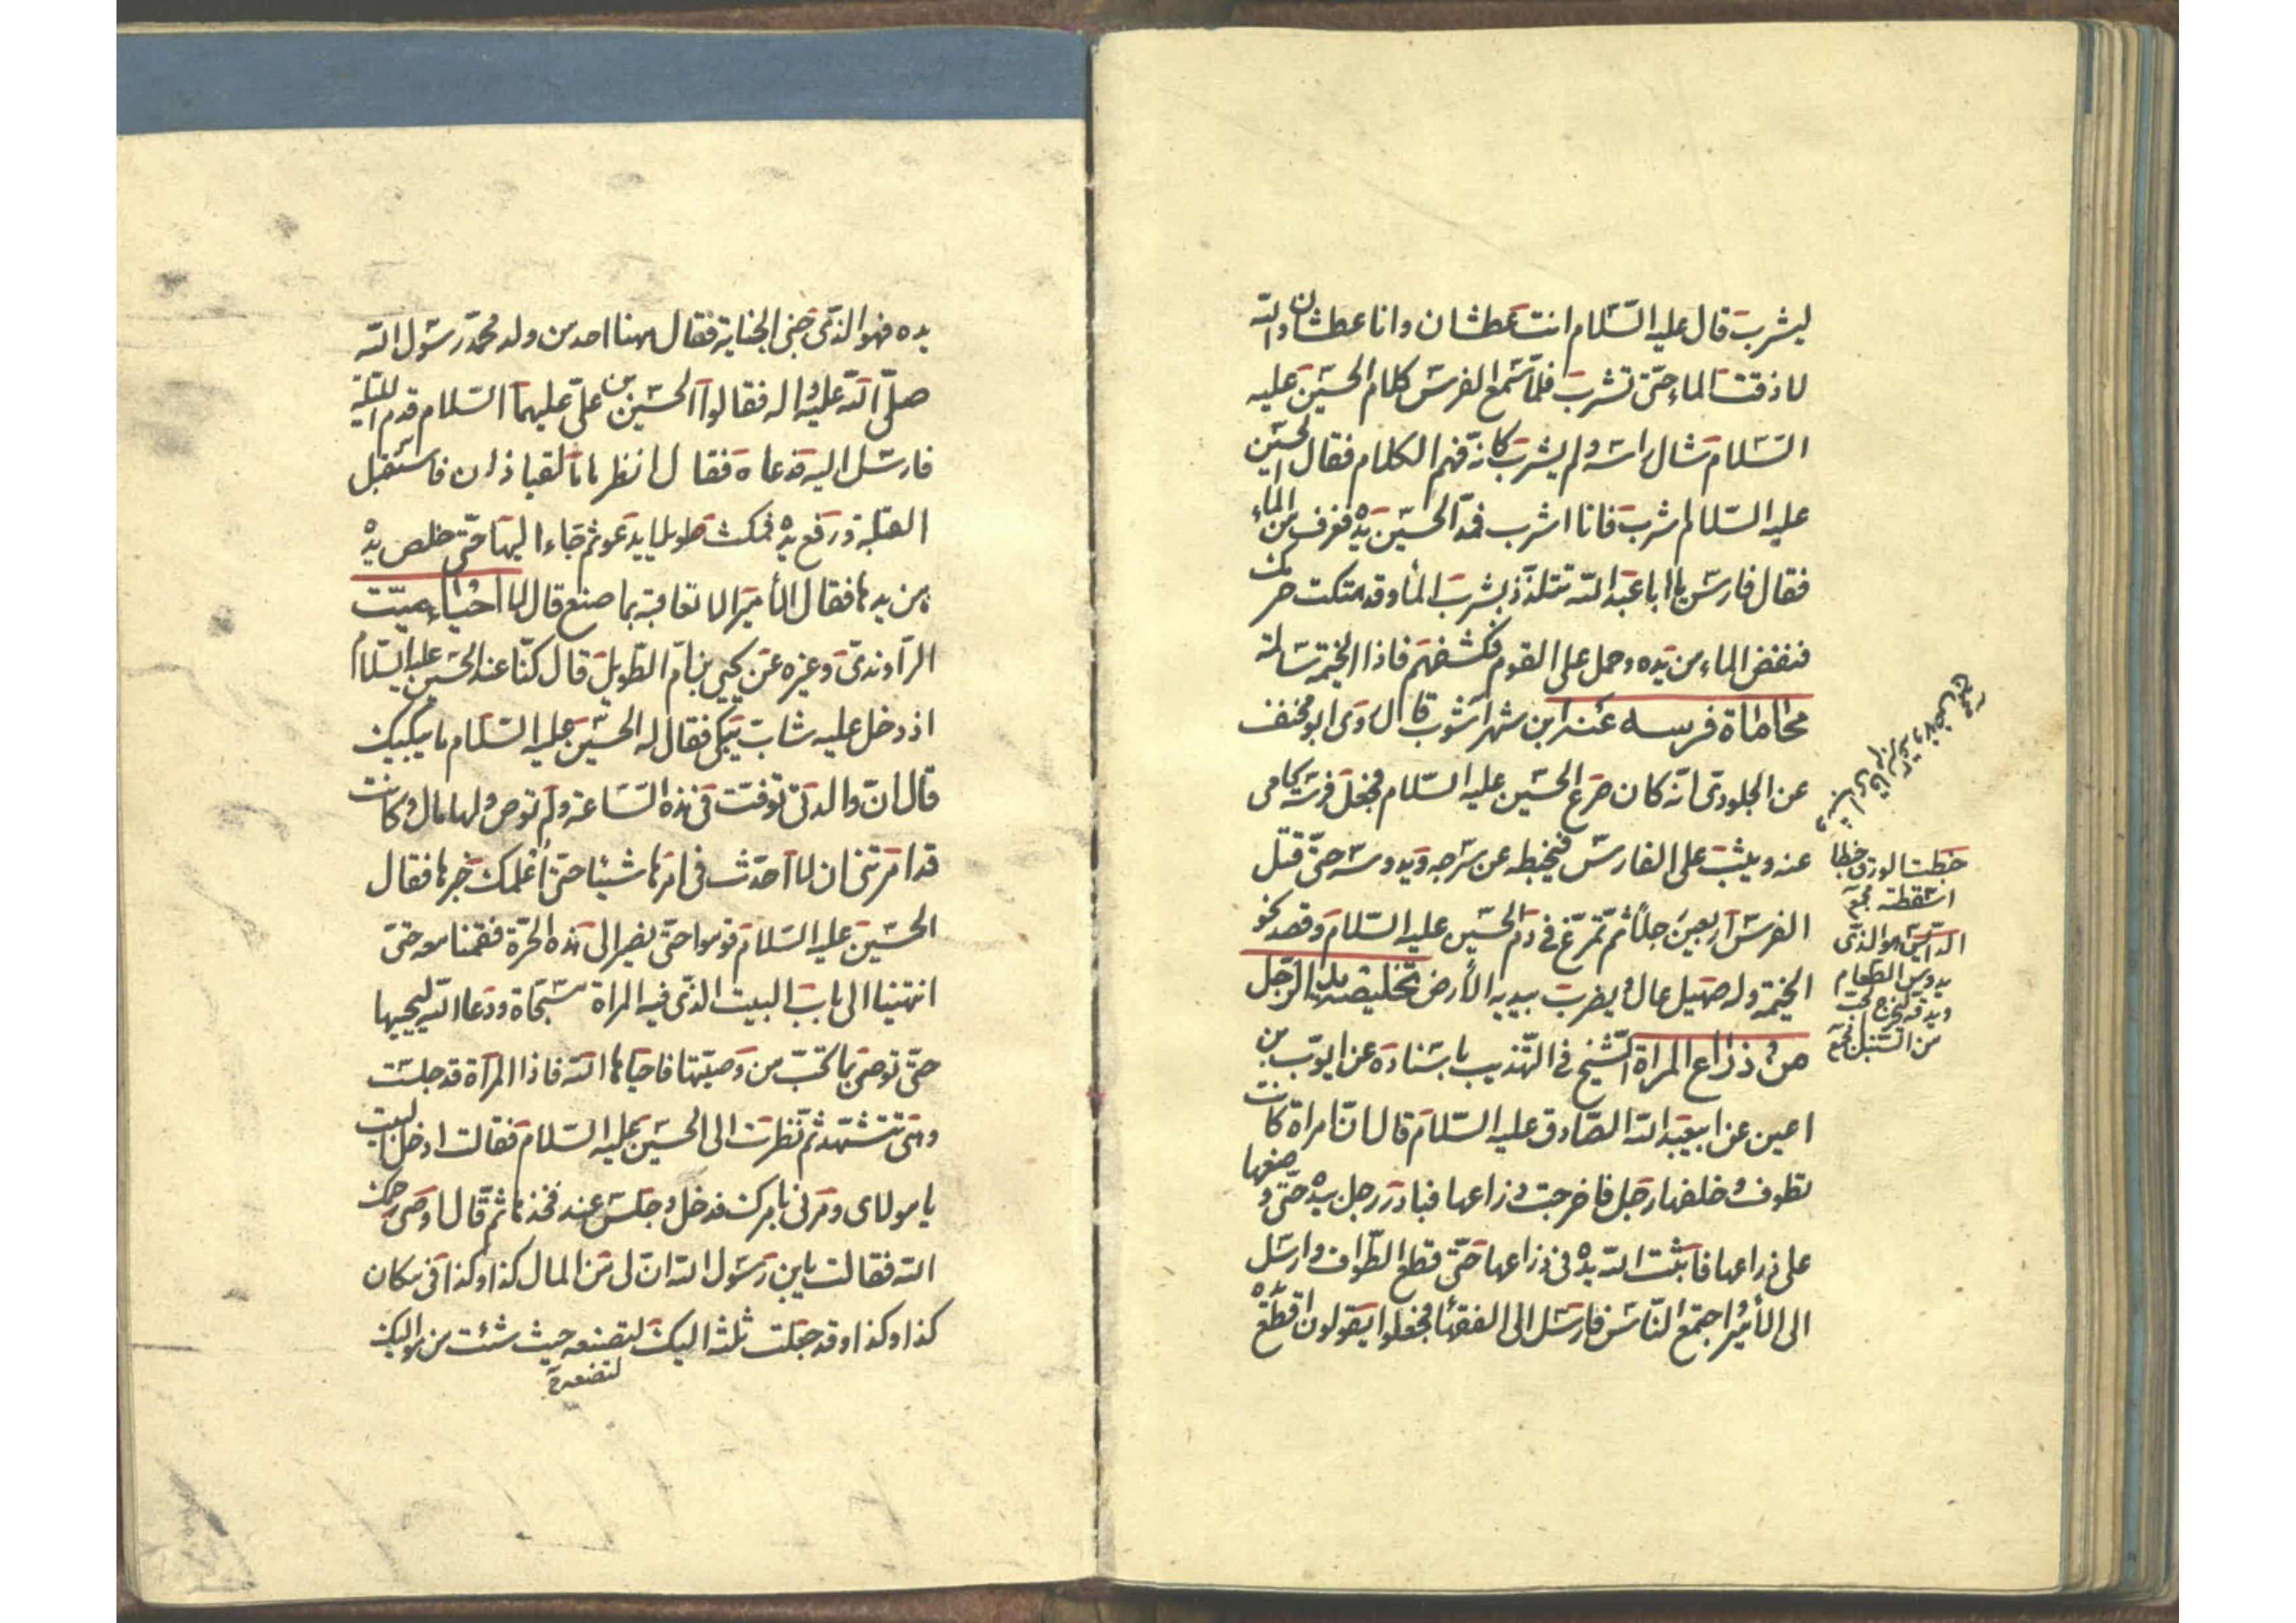 ليشرب قال عليه السّلام انت عطشان وانا عطشان والله
لا ذقت الماء حتّى تشرب فلمّا سمع الفرس كلام الحسين عليه
السّلام شال راسه ولم يشرب كانّه فهم الكلام فقال الحسين
عليه السّلام اشرب فانا اشرب فمدّ الحسين يده فغرف من الماء
فقال فارس يا ابا عبد الله تتلذّذ بشرب الماء وقد هتكت حرمك
فنفض الماء من يده وحمل على القوم فكشفهم فاذا الخيمة سالمة
محاماة فرسه عنه ابن شهراشوب قال روى ابو مخنف
عن الجلودى انّه كان صرع الحسين عليه السّلام فجعل فرسه يحامى
عنه ويثب على الفارس فيخبطه عن سرجه ويدوسه حتّى قتل
الفرس اربعين رجلا ثم تمرّغ فى دم الحسين عليه السّلام وقصد نحو
الخيمة وله صهيل عال ويضرب بيديه الأرض تخليصه يد الرّجل
من ذراع المراة الشّيخ فى التّهذيب باسناده عن ايّوب بن
اعين عن ابيعبد الله الصّادق عليه السّلام قال انّ امراة كانت
تطوف وخلفها رجل فاخرجت ذراعها فبادر رجل بيده حتّى وضعها
على ذراعها فاثبت الله يده فى ذراعها حتّى قطع الطّواف وارسل
الى الأمير واجتمع النّاس فارسل الى الفقهاء فجعلوا يقولون اقطع
خبطت الورق خبطا
اسقطته مجمع
الدّائس هو الذّى
يدوس الطّعام
ويدقّه ليخرج الحبّ
من السّنبل مجمع
يده فهو الذّى جنى الجناية فقال ههنا احد من ولد محمّد رسول الله
صلّى الله عليه واله فقالوا الحسين بن علىّ عليهما السّلام قدم اللّيلة
فارسل اليه فدعاه فقال انظر ما لقيا ذان فاستقبل
القبلة ورفع يده فمكث طويلا يدعو ثم جاء اليها حتّى خلص يده
من يدها فقال الأمير الا نعاقبه بما صنع قال لا احياء ميّت
الرّاوندىّ وغيره عن يحيى بن امّ الطّويل قال كنّا عند الحسين عليه السّلام
اذ دخل عليه شابّ يبكى فقال له الحسين عليه السّلام ما يبكيك
قال انّ والدتى توفّت فى هذه السّاعة ولم توص ولها مال وكانت
قد امرتنى ان لا احدث فى امرها شيئا حتّى اعلمك خبرها فقال
الحسين عليه السّلام قوموا حتّى نصير الى هذه الحرّة فقمنا معه حتّى
انتهينا الى باب البيت الذّى فيه المراة مسجّاة ودعا الله ليحييها
حتّى توصى بما تحبّ من وصيّتها فاحياها الله فاذا المراة قد جلست
وهى تتشهّد ثم نظرت الى الحسين عليه السّلام فقالت ادخل البيت
يا مولاى ومرنى بامرك فدخل وجلس عند فخذها ثم قال اوصى يرحمك
الله فقالت يابن رسول الله انّ لى من المال كذا وكذا فى مكان
كذا وكذا وقد جعلت ثلثه اليك لتصنعه حيث شئت من مواليك
لتضعه